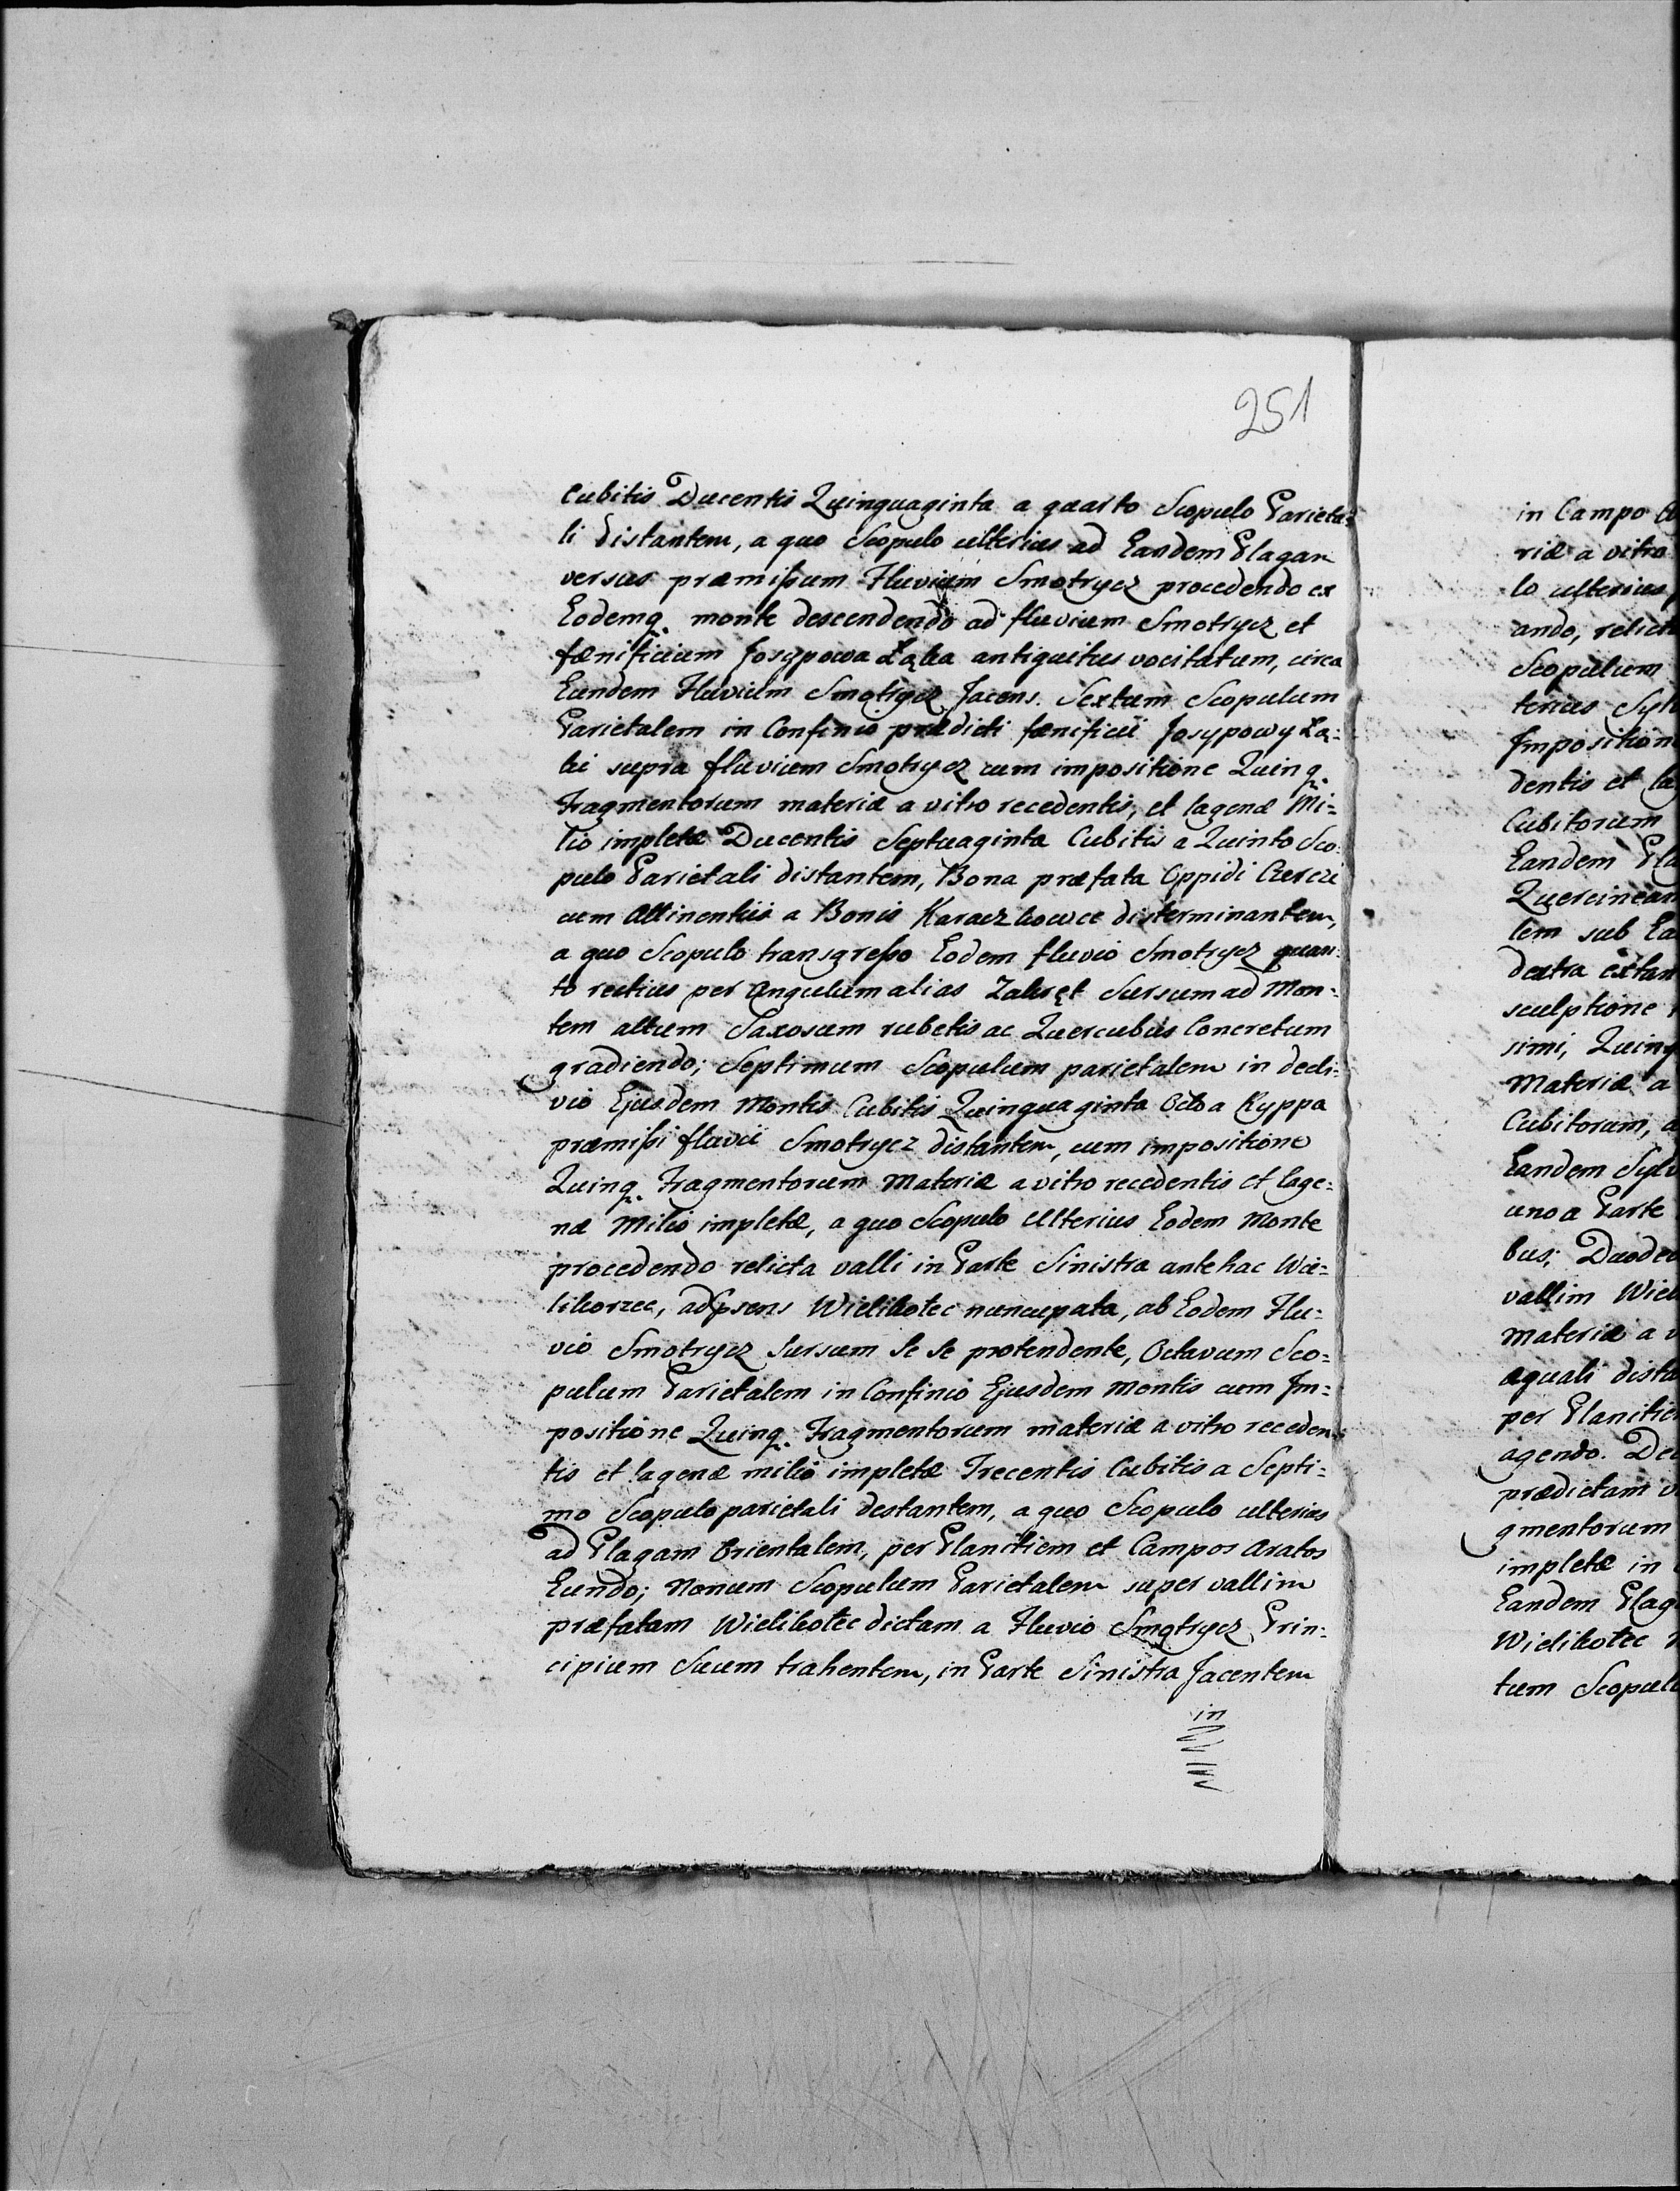 251
Cubitis Ducentis Quinquaginta a quarto Scopulo Parieta=
li distantem, a quo Scopulo ulterius ad Eandem Plagam
versus præmissum Fluvium Smotrycz procedendo ex
Eodemq. monte descendendo ad fluvium Smotrycz et
fænificium Josypowa Łąka antiquitus vocitatum, circa
Eundem Fluvium Smotrycz Jacens. Sextum Scopulum
Parietalem in Confinio prædicti fænificii Josypowy Łą=
ki supra fluvium Smotrycz cum impositione Quinq.
Fragmentorum materiæ a vitro recedentis, et lagenæ Mi=
lio impletæ Ducentis Septuaginta Cubitis a Quinto Sco=
pulo Parietali distantem, Bona præfata Oppidi Czercze
cum Attinentiis a Bonis Karaczkowce disterminantem,
a quo Scopulo transgresso Eodem fluvio Smotrycz quan=
to rectius per Angulum alias Zakręt Sursum ad Mon=
tem altum Saxosum rubetis ac Quercubus Concretum
gradiendo; Septimum Scopulum parietalem in decli=
vio Ejusdem Montis Cubitis Quinquaginta Octo a Ryppa
præmissi fluvii Smotrycz distantem, cum impositione
Quinq. Fragmentorum Materiæ a vitro recedentis et lage=
næ Milio impletæ, a quo Scopulo Ulterius Eodem Monte
procedendo relicta valli in Parte Sinistra antehac Wie=
likorzec, ad psens Wielikotec nuncupata, ab Eodem Flu=
vio Smotrycz Sursum Se Se protendente, Octavum Sco=
pulum Parietalem in Confinio Ejusdem Montis cum Im=
positione Quinq. Fragmentorum materiæ a vitro receden=
tis et lagenæ milio impletæ Trecentis Cubitis a Septi=
mo Scopulo parietali destantem, a quo Scopulo ulterius
ad Plagam Orientalem, per Planitiem et Campos Aratos
Eundo; Nonum Scopulum Parietalem super vallim
præfatam Wielikotec dictam a Fluvio Smotrycz Prin=
cipium Suum trahentem, in Parte Sinistra Jacentem
in
in Campo
riæ a vitro
lo ulterius
ando,
Scopulum
terius
Imposition
dentis et
Cubitorum
Eandem
lem sub
dextra
sculptione
simi,
Materiæ a
Cubitorum,
Eandem
uno a Parte
bus;
vallim
Materiæ a
æquali
per
agendo.
prædictam
gmentorum
impletæ in
Eandem
Wielikotec
tum